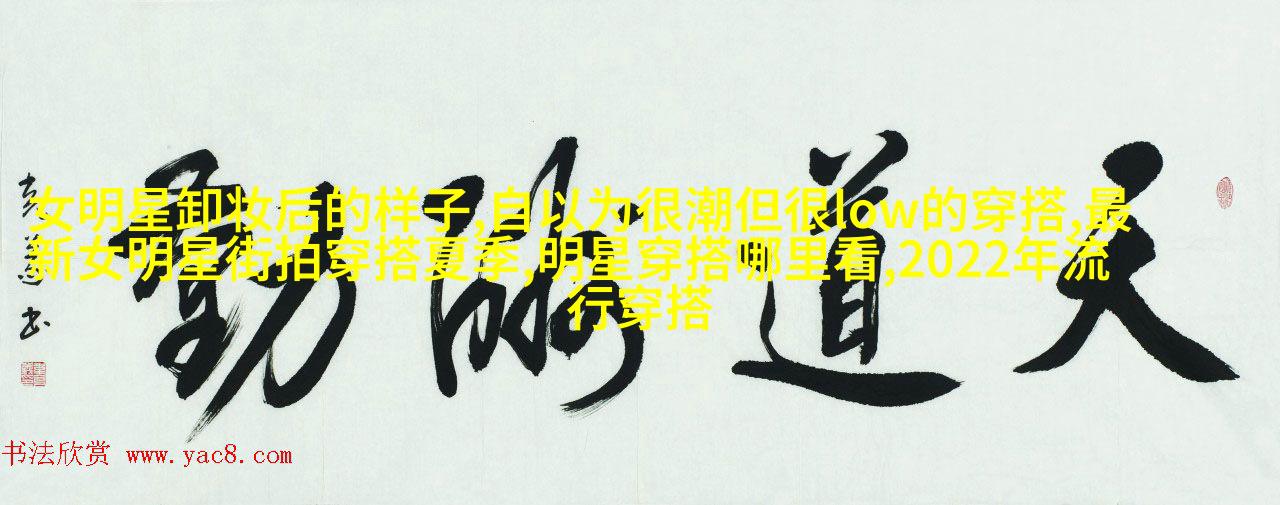 天道酬勤
女明星卸妆后的样子,自以为很潮但很low的穿搭,最
新女明星街拍穿搭夏季,明星穿搭哪里看,2022年流
行穿搭
书法欣赏 www.yac8.com